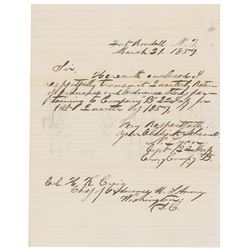 Fort Randall N.T.
March 31. 1859
Sir
Herewith enclosed I
respectfully transmit Quarterly Return
of Ordnance and Ordnance Stores per-
taining to Company B 2d Inf for
1st Quarter of 1859.
Very Respectfully
your Obdt
Capt 2d Inf
Comg Comp B
Col. H. K. Craig
Chief of Ordnance U. S. Army
Washington
D.C.